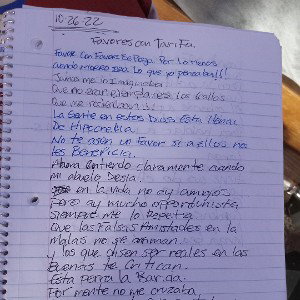 10-26-22
Favores con Tarifa.
Favor con Favor Se Paga Por Lo menos
cuando muera eso Lo que yo pensaba!!!
Jamas me imaginaba
Que no azar ejemplo tere los Gallos
Que me rodeaban
La Gente en estos Dias Esta Llena
De Hipocrecia
No te asen un Favor si a ellos no
les Beneficia.
Ahora Entiendo claramente cuando
mi abuelo Desia!
en la vida no ay amigos
Pero ay mucho oportunista
siempre me lo Repetia
Que las Falsas Amistades en la
malas no se arriman
y los que disen ser reales en las
Buenas te Critican.
Esta perra la Barda
Por mente no me cruzaba,